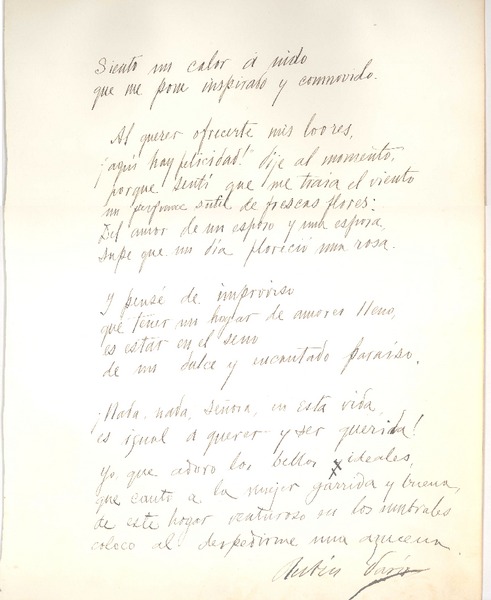 Siento un calor de nido
que me pone inspirado y conmovido.
Al querer ofrecerte mis loores,
"¡aquí hay felicidad!" dije al momento;
porque sentí que me traía el viento
un perfume sutil de frescas flores:
Del amor de un esposo y una esposa,
supe que un día floreció una rosa.
Y pensé de improviso
que tener un hogar de amores lleno,
es estar en el seno
de un dulce y encantado paraíso.
¡Nada, nada, señora, en esta vida,
es igual a querer y ser querida!
Yo que adoro los bellos ideales,
que canto a la mujer garrida y buena,
de este hogar venturoso en los umbrales
coloco al despedirme una azucena.
Rubén Darío